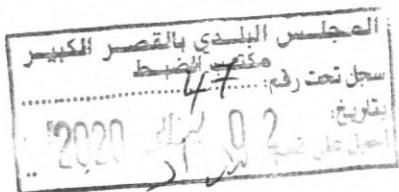 المجلس البلدي بالقصر الكبير
مكتب الضبط
سجل تحت رقم: 47
بتاريخ: 02 يناير 2020